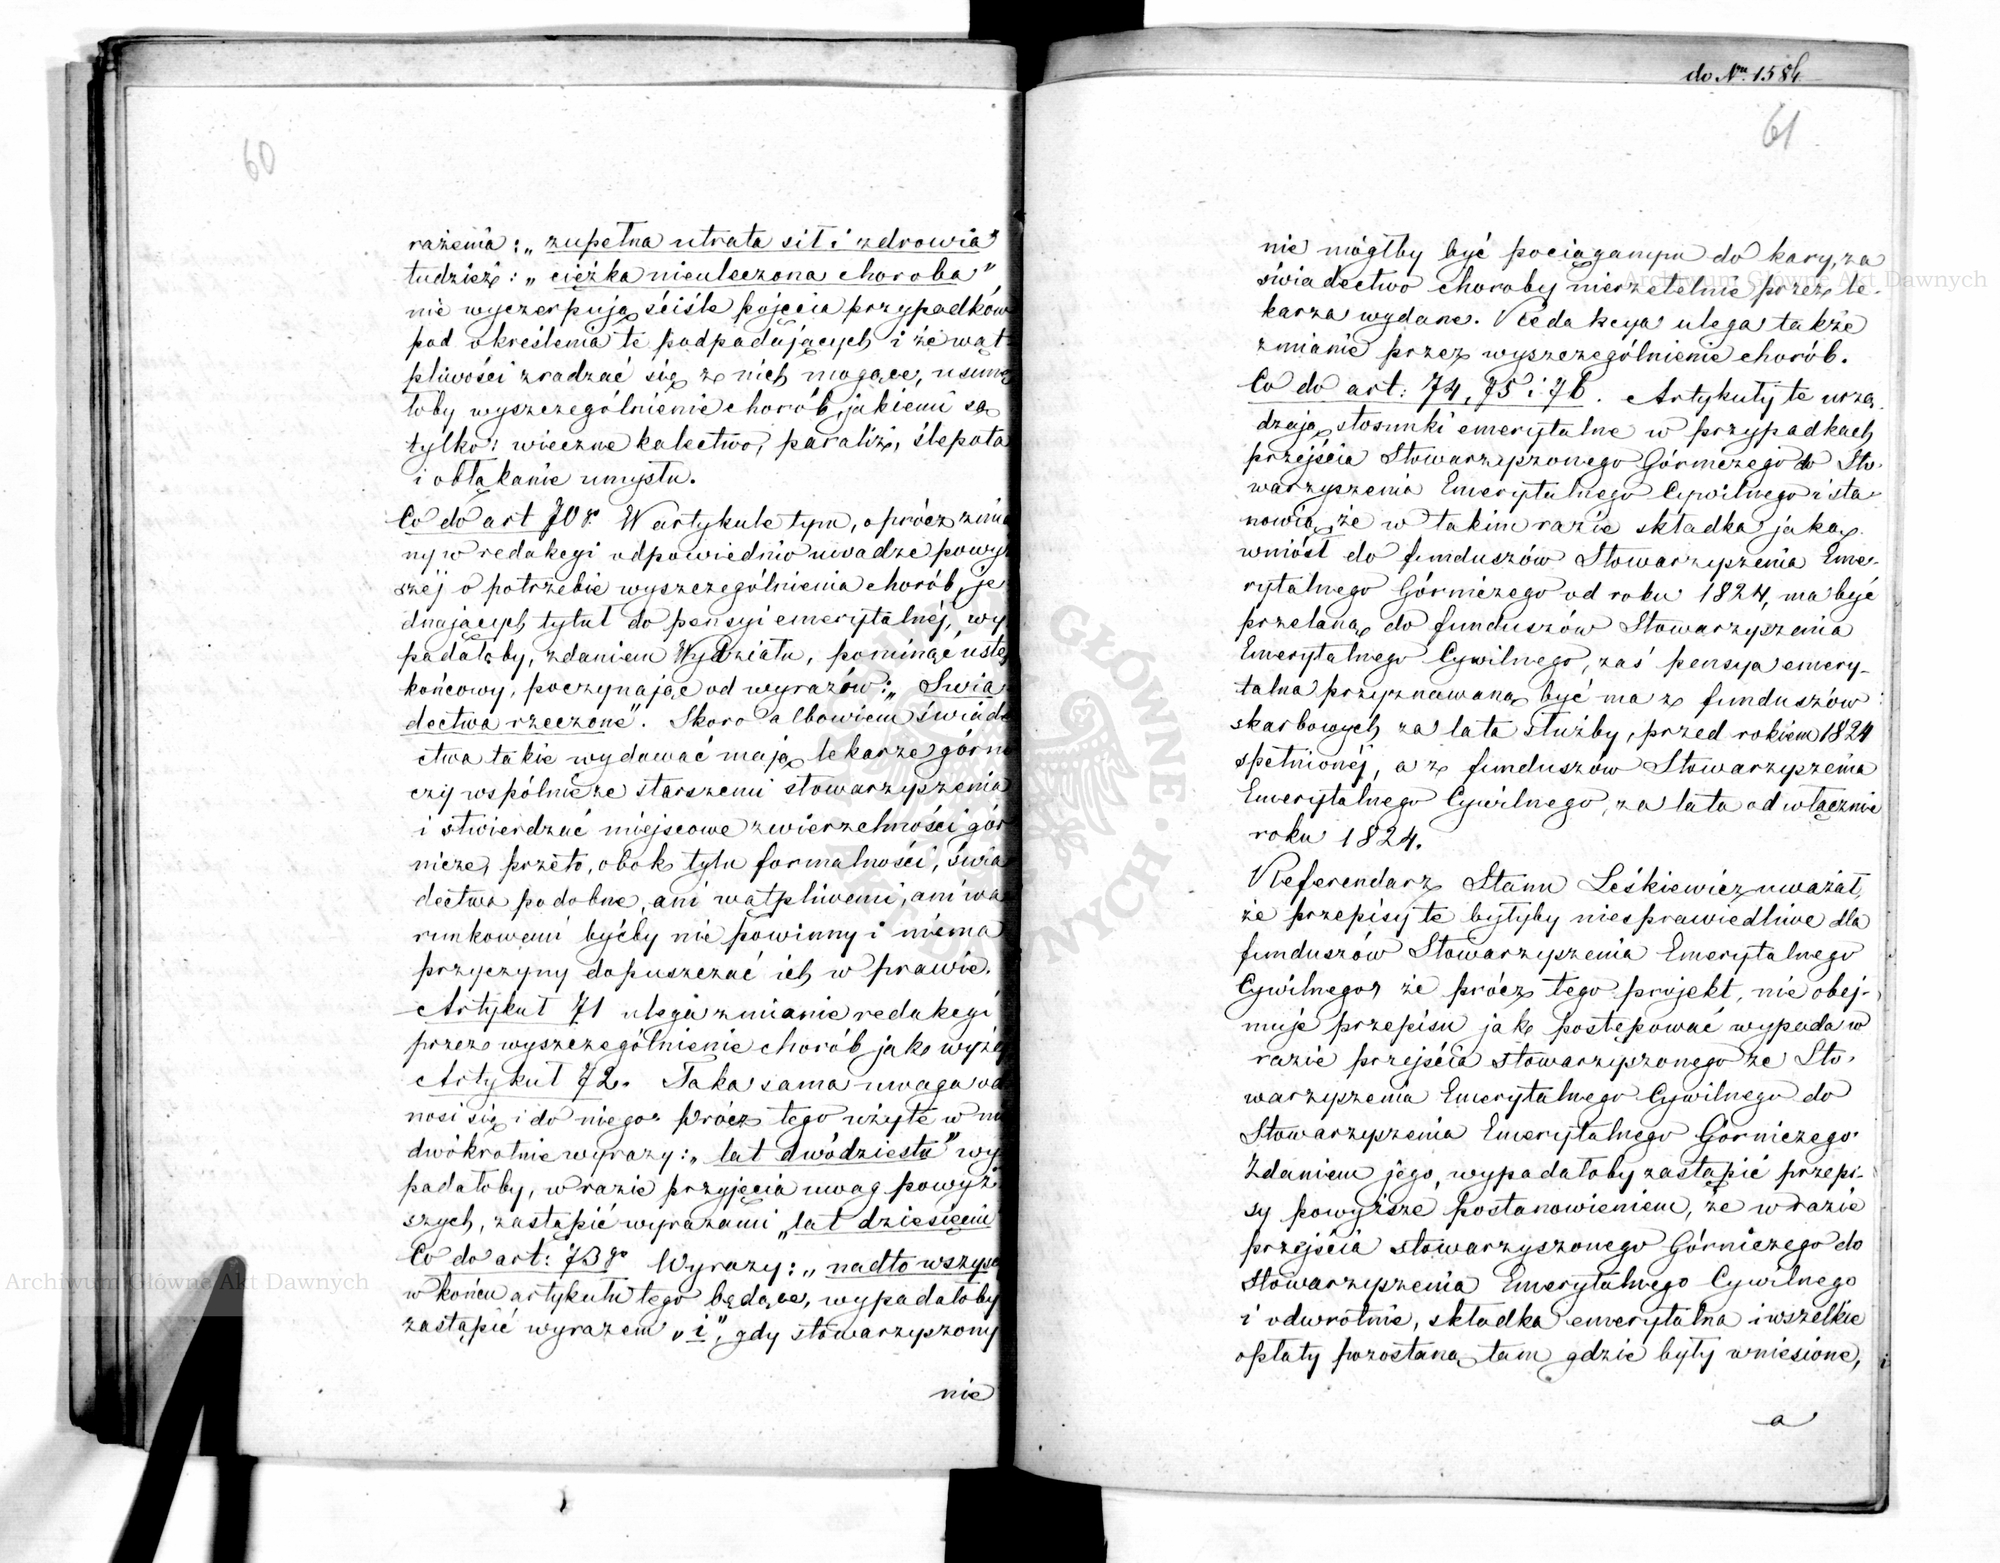 60
rażenia: „zupełna utrata sił i zdrowia"
tudzież: „ciężka nieuleczona choroba"
nie wyczerpują ściśle pojęcia przypadków
pod określenia te podpadających i że wąt-
pliwości zradzać się z nich mogące, usunę
łoby wyszczególnienie chorób, jakiemi są
tylko: wieczne kalectwo, paraliż, ślepota
i obłąkanie umysłu.
Co do art 70go W artykule tym, oprócz zmia
ny w redakcyi odpowiednio uwadze powyż
szej o potrzebie wyszczególnienia chorób, je
dnających tytuł do pensyi emerytalnéj, wy
padałoby, zdaniem Wydziału, pominąć ustęp
końcowy, poczynając od wyrazów: „Świa
dectwa rzeczone". Skoro albowiem świade
ctwa takie wydawać mają lekarze górni
czy wspólnie ze starszemi stowarzyszenia
i stwierdzać miejscowe zwierzchności gór
nicze, przeto, obok tylu formalności, świa
dectwa podobne, ani wątpliwemi, ani wa
runkowemi byćby nie powinny i niéma
przyczyny dopuszczać ich w prawie.
Artykuł 71 ulega zmianie redakcyi
przez wyszczególnienie chorób jak wyżéj
Artykuł 72. Taka sama uwaga od
nosi się i do niego. Prócz tego użyte w nim
dwókrotnie wyrazy: „lat dwódziestu" wy
padałoby, w razie przyjęcia uwag powyż
szych, zastąpić wyrazami „lat dziesięciu
Co do art: 73go Wyrazy: „nadto wszyscy
w końcu artykułu tego będące, wypadałoby
zastąpić wyrazem „i", gdy stowarzyszony
nie
do Nru. 1584
61
nie mógłby być pociąganym do kary, za
świadectwo choroby nierzetelnie przez le-
karza wydane. Redakcya ulega także
zmianie przez wyszczególnienie chorób.
Co do art: 74, 75 i 76. Artykuły te urzą-
dzają stosunki emerytalne w przypadkach
przejścia Stowarzyszonego Górniczego do Sto-
warzyszenia Emerytalnego Cywilnego i sta-
nowią, że w takim razie składka jaką
wniósł do funduszów Stowarzyszenia Eme-
rytalnego Górniczego od roku 1824, ma być
przelaną do funduszów Stowarzyszenia
Emerytalnego Cywilnego, zaś pensya emery-
talna przyznawaną być ma z funduszów
skarbowych za lata służby, przed rokiem 1824
spełnionéj, a z funduszów Stowarzyszenia
Emerytalnego Cywilnego, za lata od włącznie
roku 1824.
Referendarz Stanu Leśkiewicz uważał,
że przepisy te byłyby niesprawiedliwe dla
funduszów Stowarzyszenia Emerytalnego
Cywilnego, że prócz tego projekt, nie obej-
muje przepisu jak postępować wypada w
razie przejścia stowarzyszonego ze Sto-
warzyszenia Emerytalnego Cywilnego do
Stowarzyszenia Emerytalnego Górniczego.
Zdaniem jego, wypadałoby zastąpić przepi-
sy powyższe postanowieniem, że w razie
przejścia stowarzyszonego Górniczego do
Stowarzyszenia Emerytalnego Cywilnego
i odwrotnie, składka emerytalna i wszelkie
opłaty pozostaną tam gdzie były wniesione,
a
Archiwum Główne Akt Dawnych
Archiwum Główne Akt Dawnych